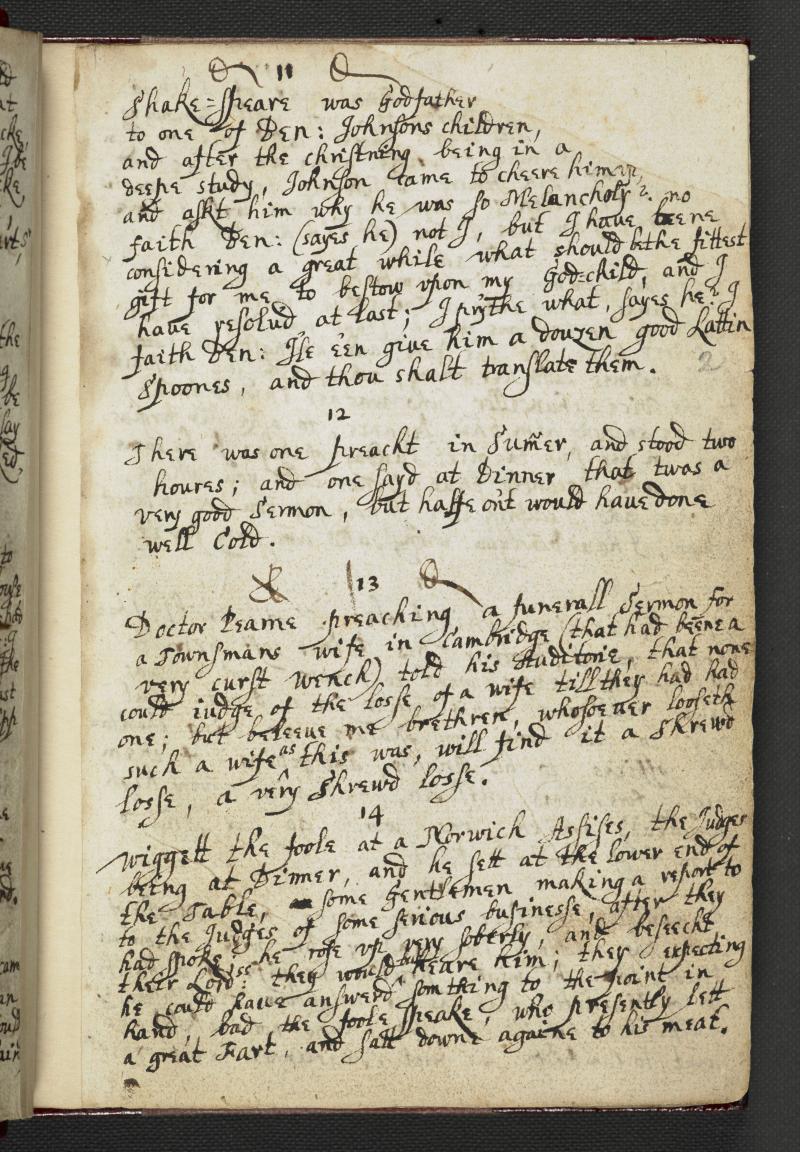 11
Shake=speare was Godfather
to one of Ben: Johnsons children,
and after the christning being in a
deepe study, Johnson came to cheere him up,
and askt him why he was so Melancholy? no
faith Ben: (sayes he) not I, but I have beene
considering a great while what should be the fittest
gift for me to bestow upon my God=child, and I
have resolud at last; I prythe what, sayes he? I
faith Ben: I'le e'en give him a douzen good Lattin
Spoones, and thou shalt translate them.
2
12
There was one preacht in Sumer, and stood two
houres; and one sayd at Dinner that twas a
very good Sermon, but halfe on't would have done
well Cold.
13
Doctor Peame preaching a funerall Sermon for
a Townsmans wife in Cambridge (that had beene a
very curst wench) told his Auditorie, that none
could iudge of the losse of a wife till they had had
one; but beleeue me brethren, whosoeuer looseth
such a wife as this was, will find it a Shrewd
losse, a very Shrewd losse.
14
Wiggett the foole at a Norwich Assises, the Judges
being at Dinner, and he sett at the lower end of
the Table, some Gentlemen making a report to
to the Judges of some serious businesse, after they
had spoke he rose up very soberly, and beseecht
their Lord:sps they would but heare him; they expecting
he could have answerd somthing to the point in
hand, bad the foole speake, who presently lett
a great Fart, and satt downe againe to his meat.